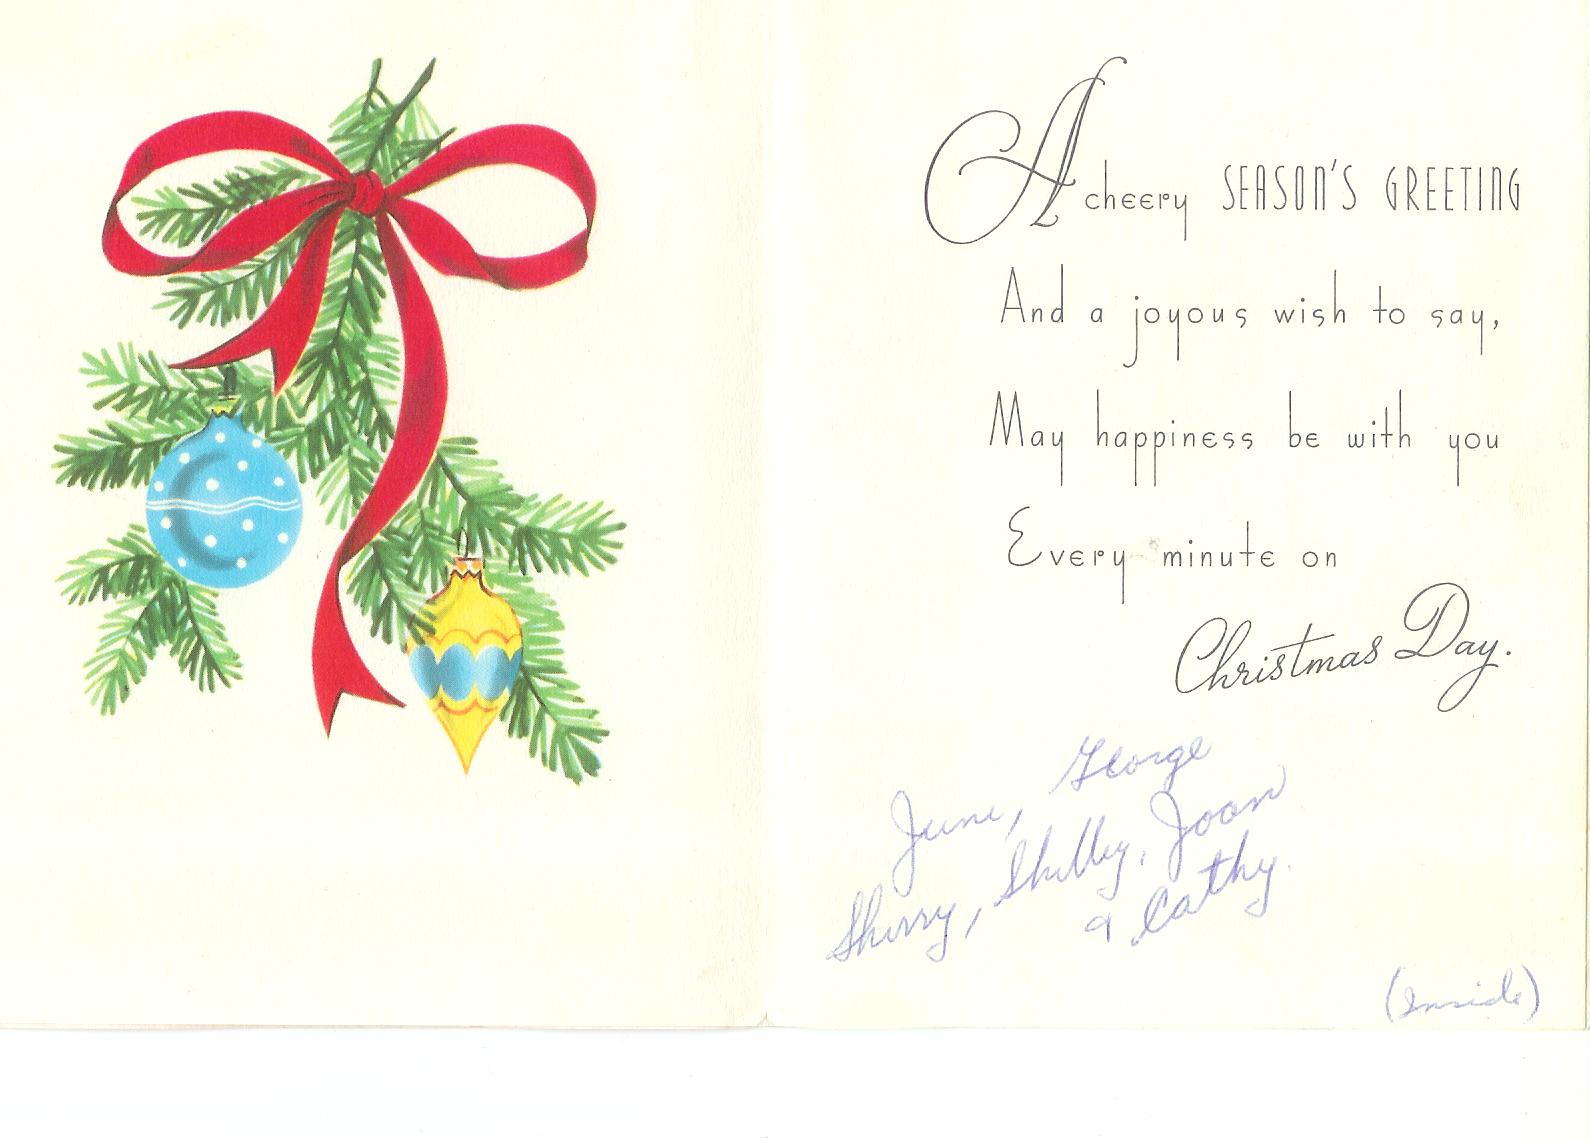 A cheery SEASON'S GREETING
And a joyous wish to say,
May happiness be with you
Every minute on
Christmas Day.
June, George
Sherry, Shelley, Joan
& Cathy.
(Inside)